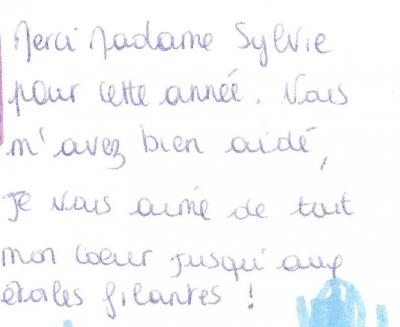 Merci Madame Sylvie
pour cette année. Vous
m'avez bien aidé,
je vous aime de tout
mon coeur jusqu'aux
étoiles filantes !